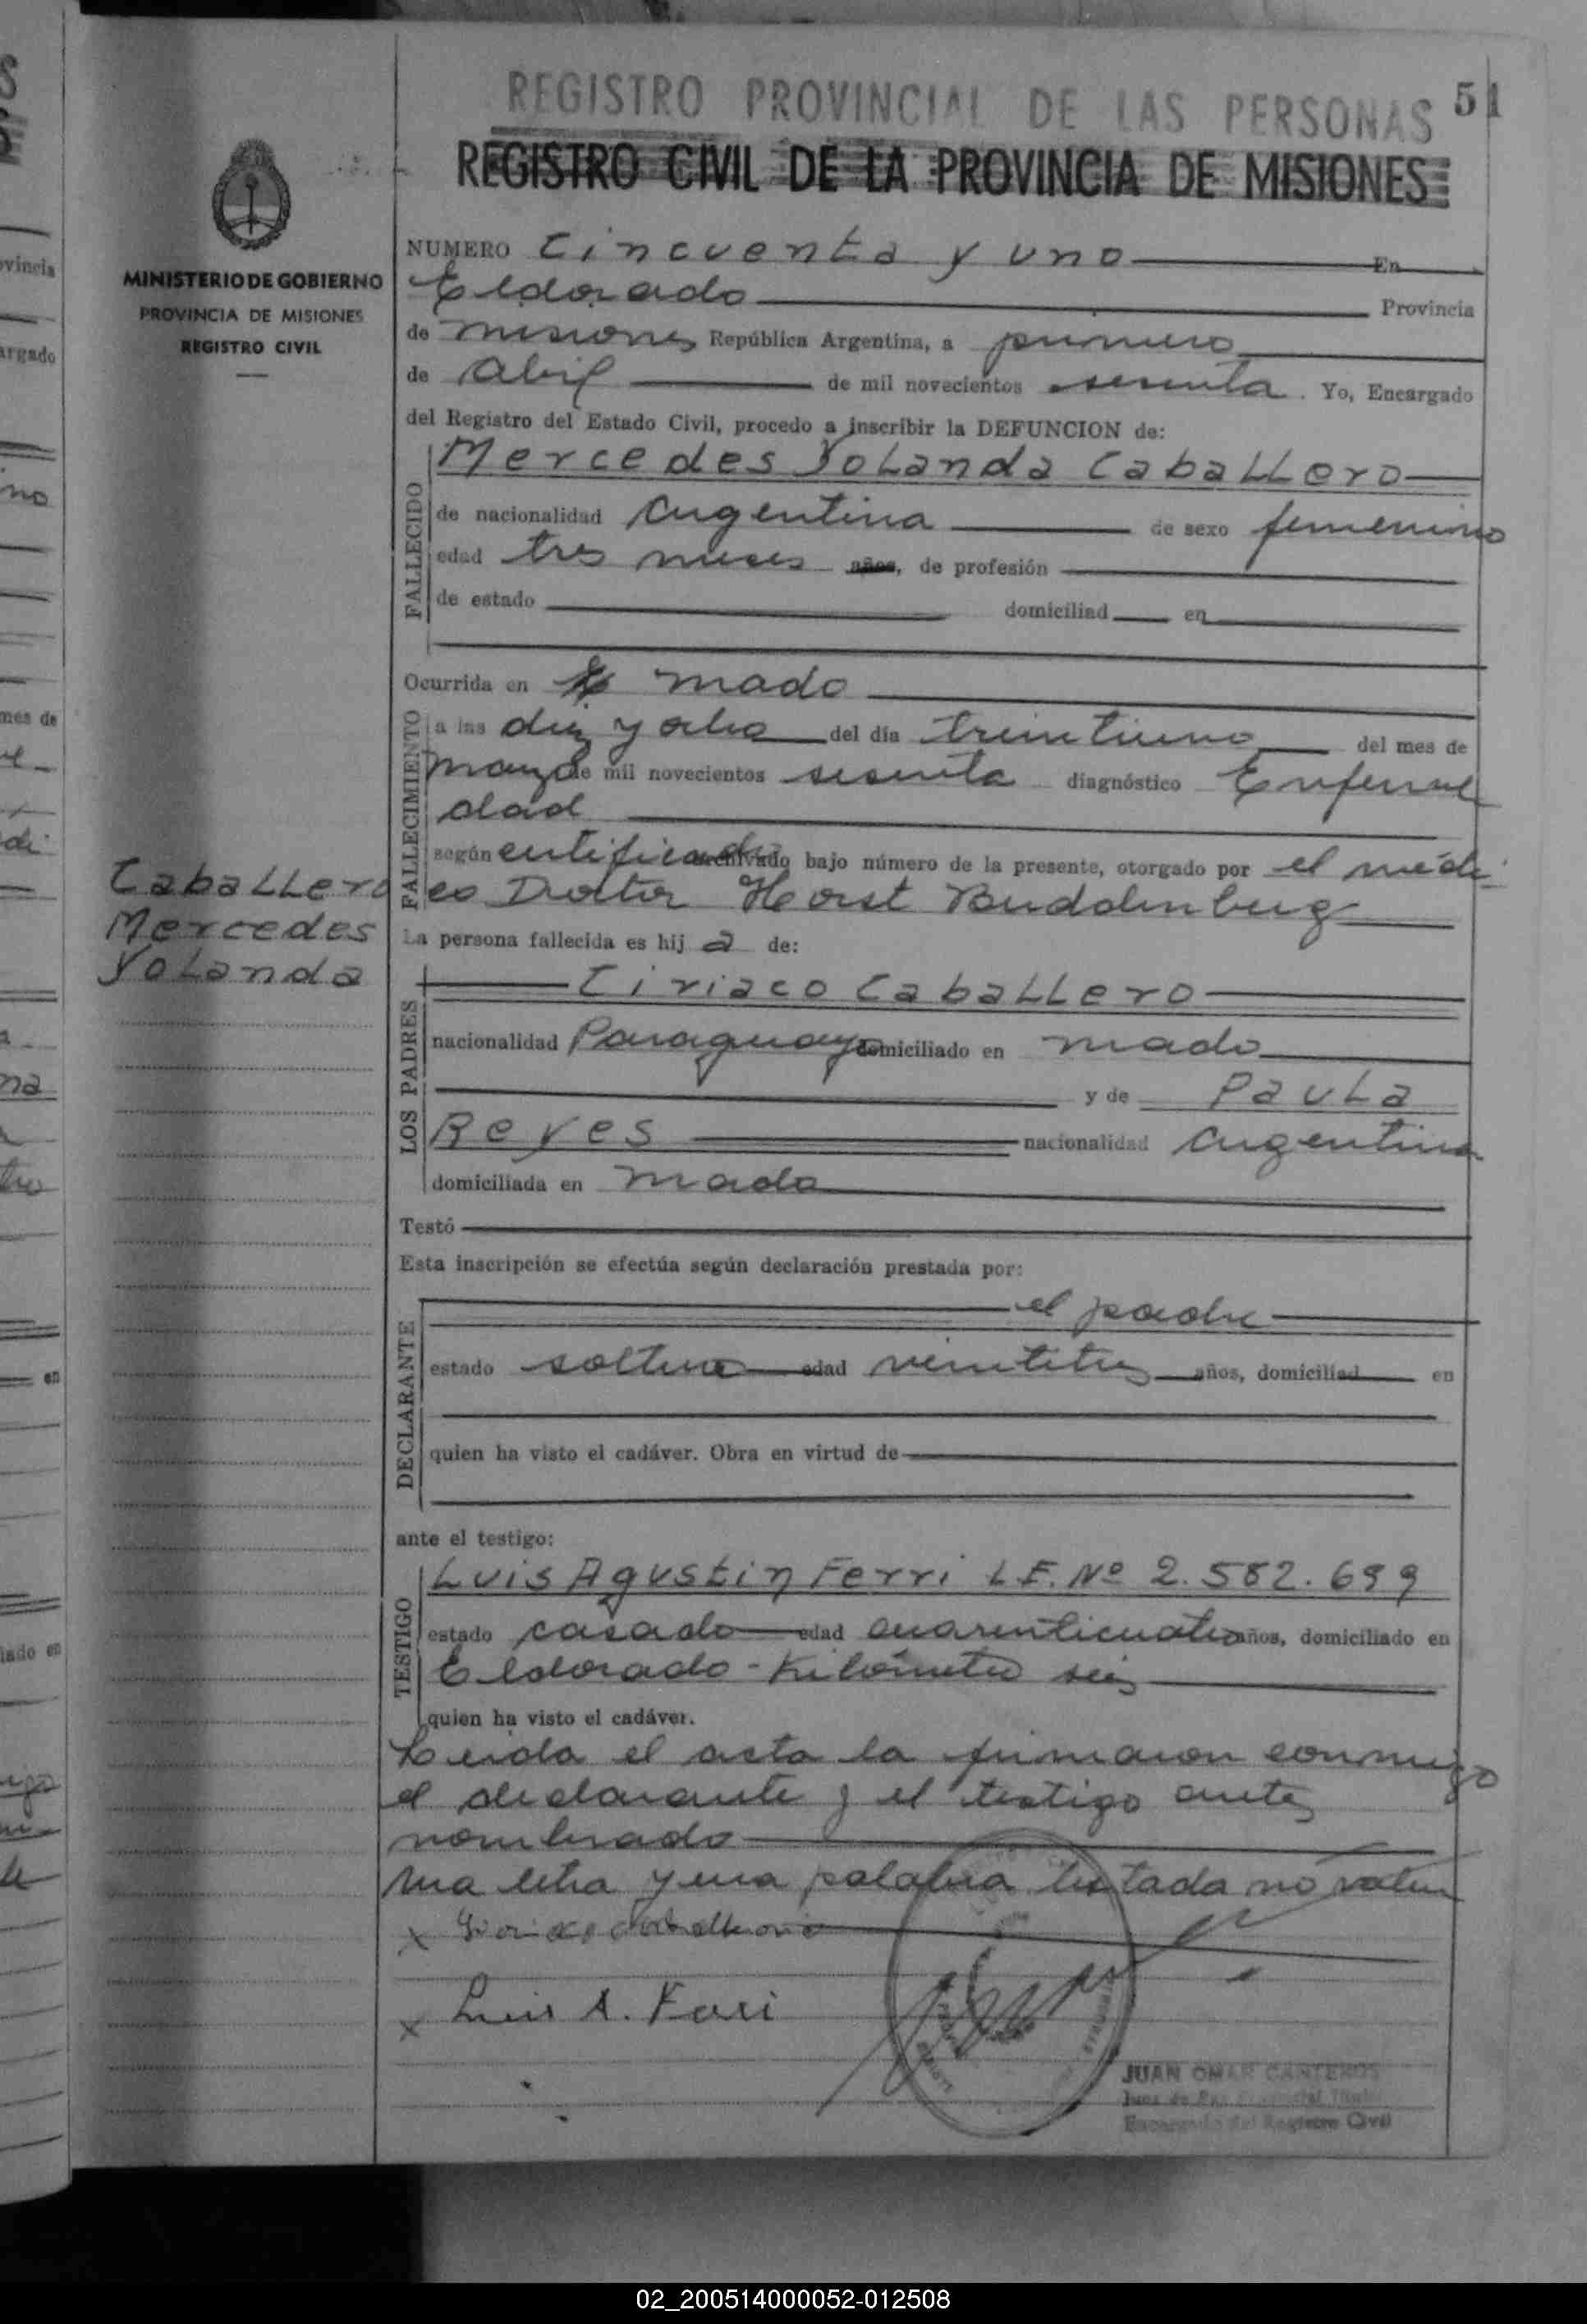 REGISTRO PROVINCIAL DE LAS PERSONAS 51
REGISTRO CIVIL DE LA PROVINCIA DE MISIONES
MINISTERIO DE GOBIERNO
PROVINCIA DE MISIONES
REGISTRO CIVIL
NUMERO Cincuenta y uno En
Eldorado Provincia
de misiones República Argentina, a primero
de Abril de mil novecientos sesenta. Yo, Encargado
del Registro del Estado Civil, procedo a inscribir la DEFUNCION de:
Mercedes Yolanda Caballero
FALLECIDO
de nacionalidad Argentina de sexo femenino
edad tres meses años, de profesión
de estado domiciliad en
Ocurrida en mado
FALLECIMIENTO
a las diez y ocho del día treintiuno del mes de
marzo de mil novecientos sesenta diagnóstico Enferme
dad
según certificado archivado bajo número de la presente, otorgado por el médi
co Doctor Horst Buddenberg
Caballero
Mercedes
Yolanda
La persona fallecida es hij a de:
LOS PADRES
Ciriaco Caballero
nacionalidad Paraguayo domiciliado en mado
y de Paula
Reyes nacionalidad Argentina
domiciliada en mado
Testó
Esta inscripción se efectúa según declaración prestada por:
DECLARANTE
el padre
estado soltero edad veintitres años, domiciliad en
quien ha visto el cadáver. Obra en virtud de
ante el testigo:
TESTIGO
Luis Agustin Ferri L.E. Nº 2.582.699
estado casado edad cuarenticuatro años, domiciliado en
Eldorado - Kilómetro seis
quien ha visto el cadáver.
Leida el acta la firmaron conmigo
el declarante y el testigo antes
nombrado
Una letra y una palabra testada no valen
x Caballero
x Luis A. Ferri
JUAN OMAR CANTEROS
Juez de Paz
Encargado del Registro Civil
02_200514000052-012508